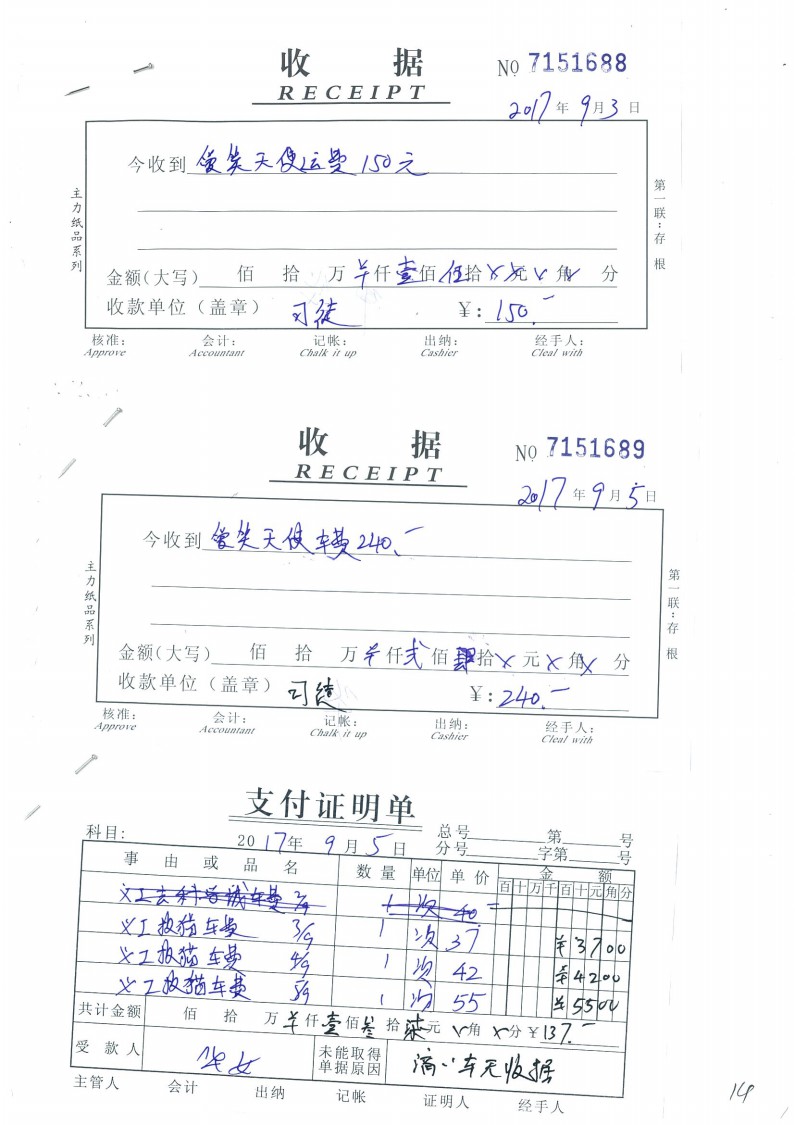 收 据
NO 7151688
RECEIPT
2017年9月3日
今收到 爱笑天使运费150元
主力纸品系列
第一联：存根
金额(大写) 佰 拾 万 ¥仟壹佰伍拾X元X角X分
收款单位（盖章） 司徒 ¥: 150.-
核准： 会计： 记帐： 出纳： 经手人：
Approve Accountant Chalk it up Cashier Cleal with
收 据
NO 7151689
RECEIPT
2017年9月5日
今收到 爱笑天使车费240.-
主力纸品系列
第一联：存根
金额(大写) 佰 拾 万¥仟弍佰肆拾X元X角X分
收款单位（盖章） 司徒 ¥: 240.-
核准： 会计： 记帐： 出纳： 经手人：
Approve Accountant Chalk it up Cashier Cleal with
支付证明单
科目: 2017年9月5日 总号 第 号
分号 字第 号
事 由 或 品 名 数 量 单位 单 价 金 额
百十万千百十元角分
义工去科学城车费 1 次 40
义工救猫车费 3/9 1 次 37 ¥3700
义工救猫车费 4/9 1 次 42 ¥4200
义工救猫车费 5/9 1 次 55 ¥5500
共计金额 佰 拾 万¥仟壹佰叁拾柒元X角X分¥137.-
受 款 人 未能取得单据原因 滴滴车无收据
主管人 会计 出纳 记帐 证明人 经手人
14